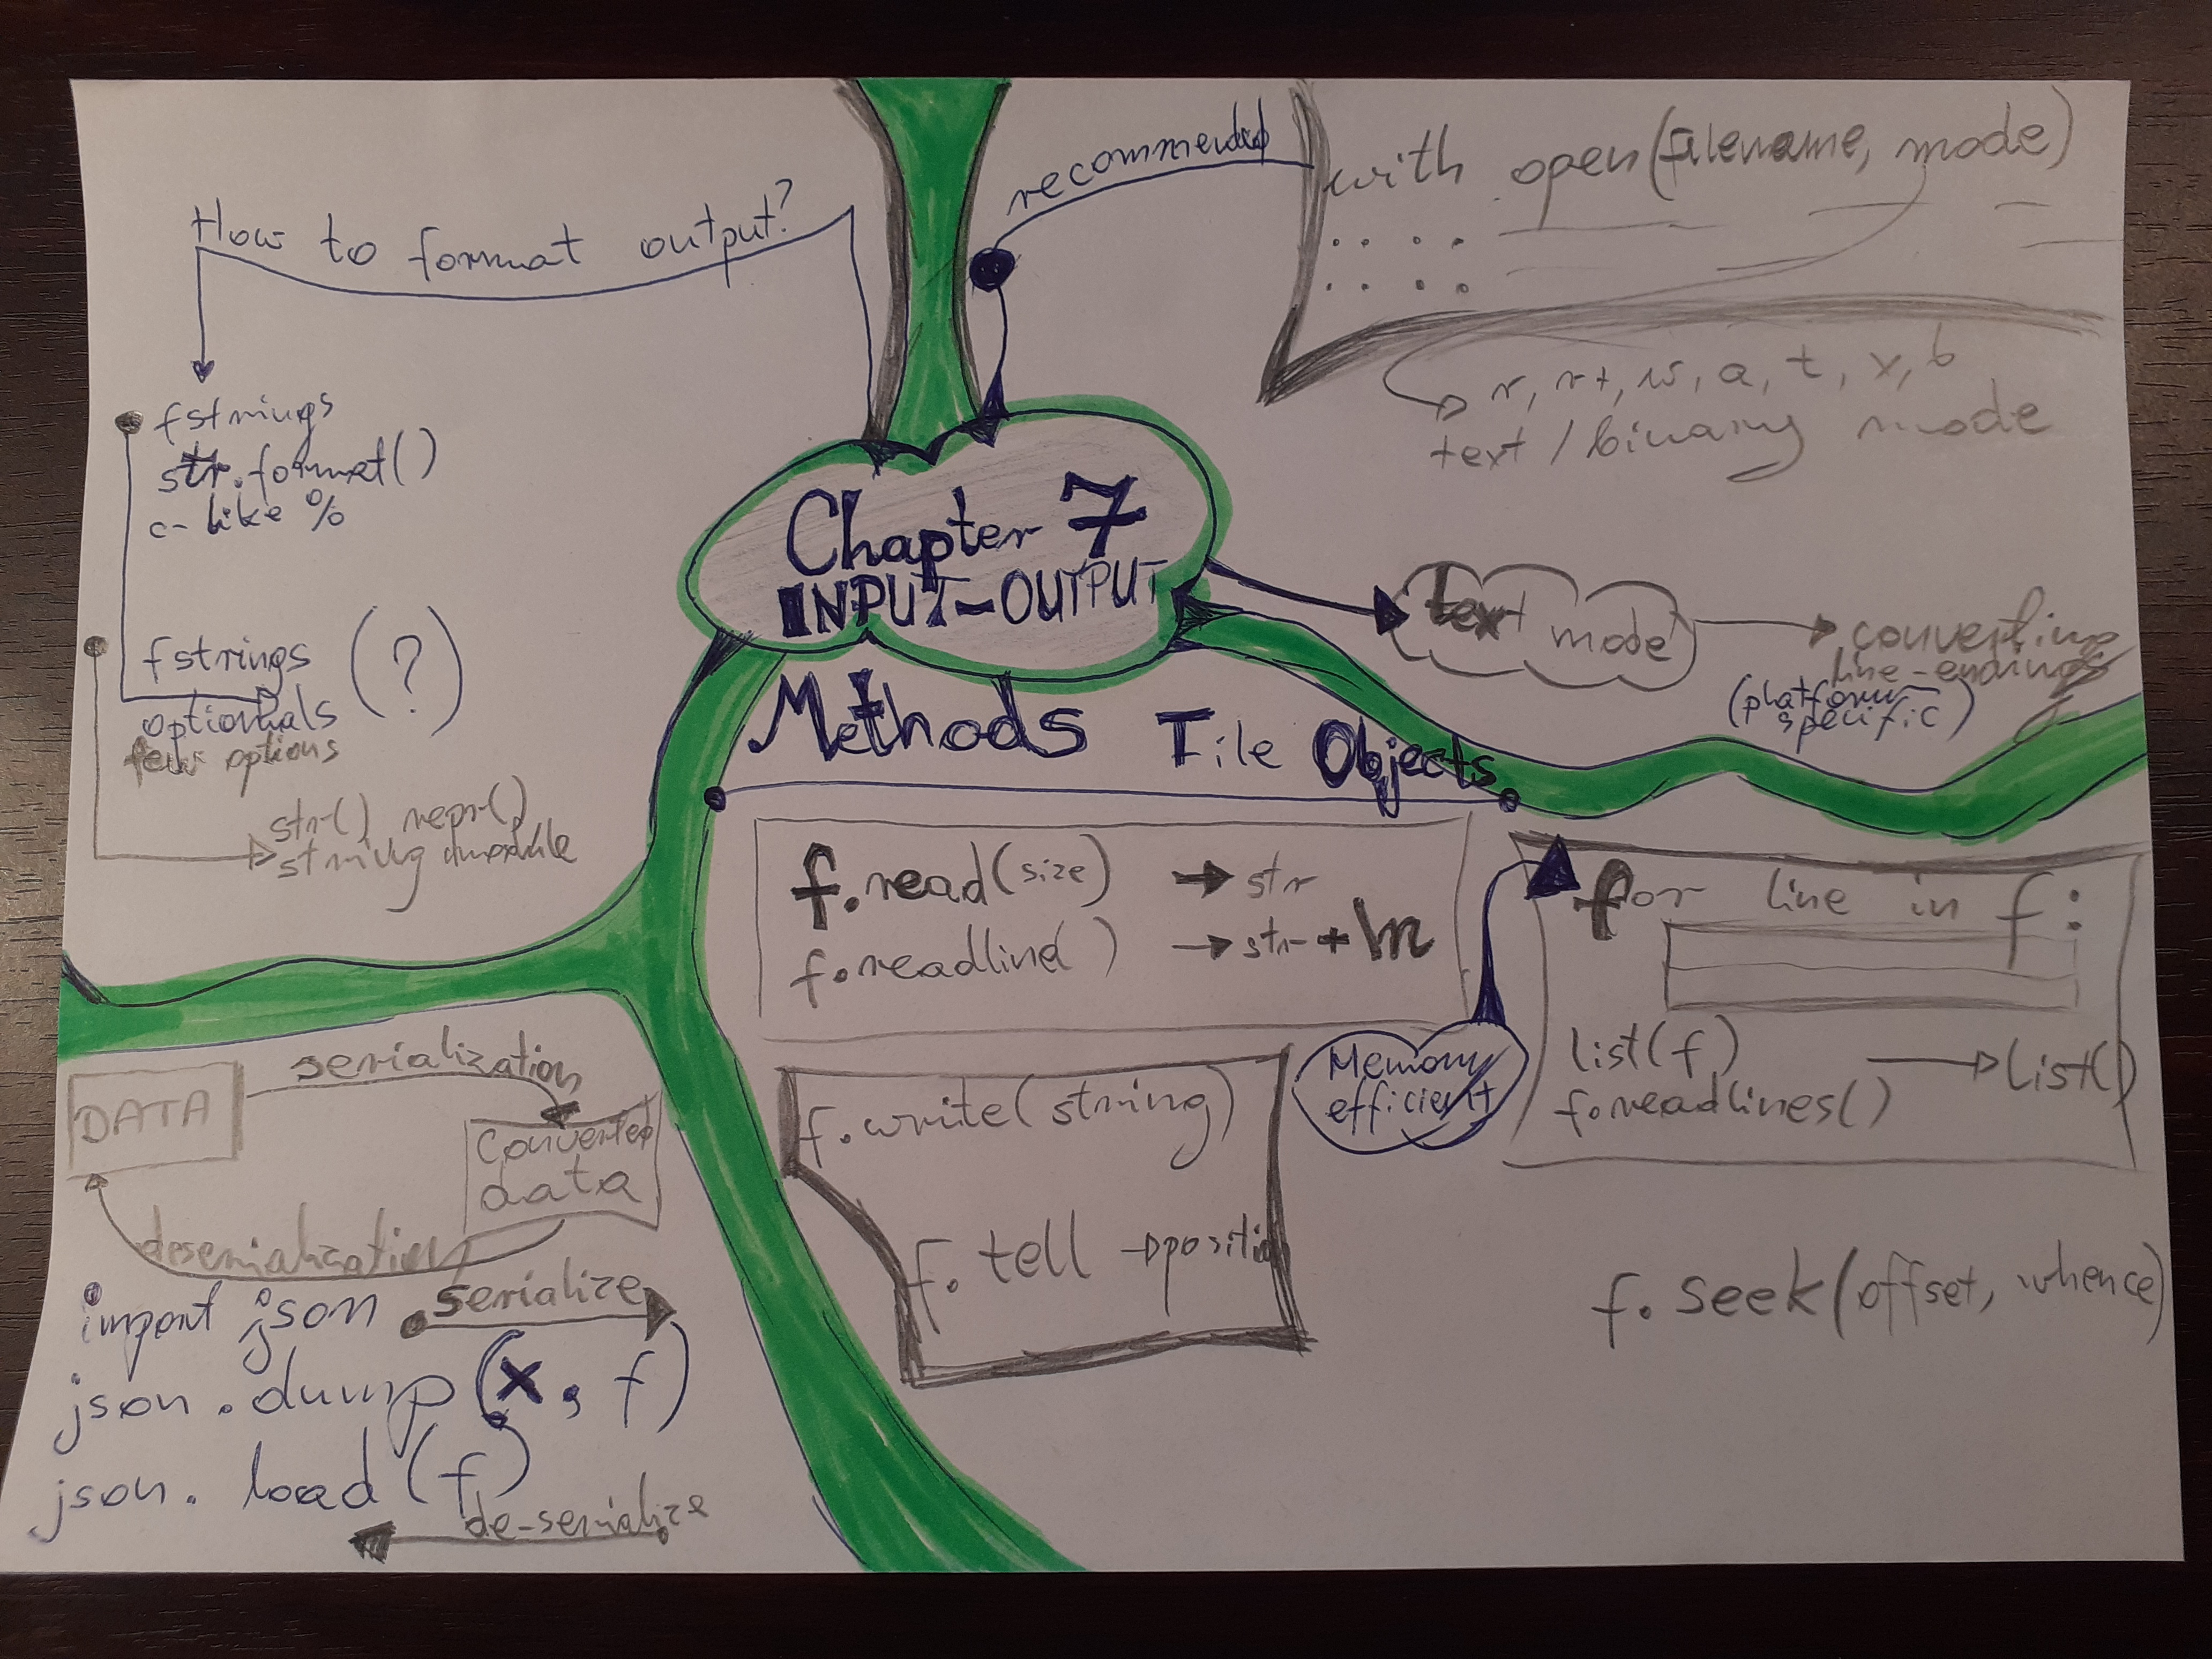 How to format output?
fstrings
str.format()
c-like %
fstrings (?)
optionals
few options
str() repr()
string
recommended
with open(filename, mode)
r, r+, w, a, t, x, b
text / binary mode
Chapter 7
INPUT-OUTPUT
text mode
converting
line-endings
(platform
specific)
Methods File Objects
f.read(size) → str
f.readline() → str + \n
f.write(string)
f.tell → position
Memory
efficient
for line in f:
list(f)
f.readlines() → list()
f.seek(offset, whence)
serialization
DATA
Converted
data
deserialization
import json
serialize
json.dump(x, f)
json.load(f)
de-serialize